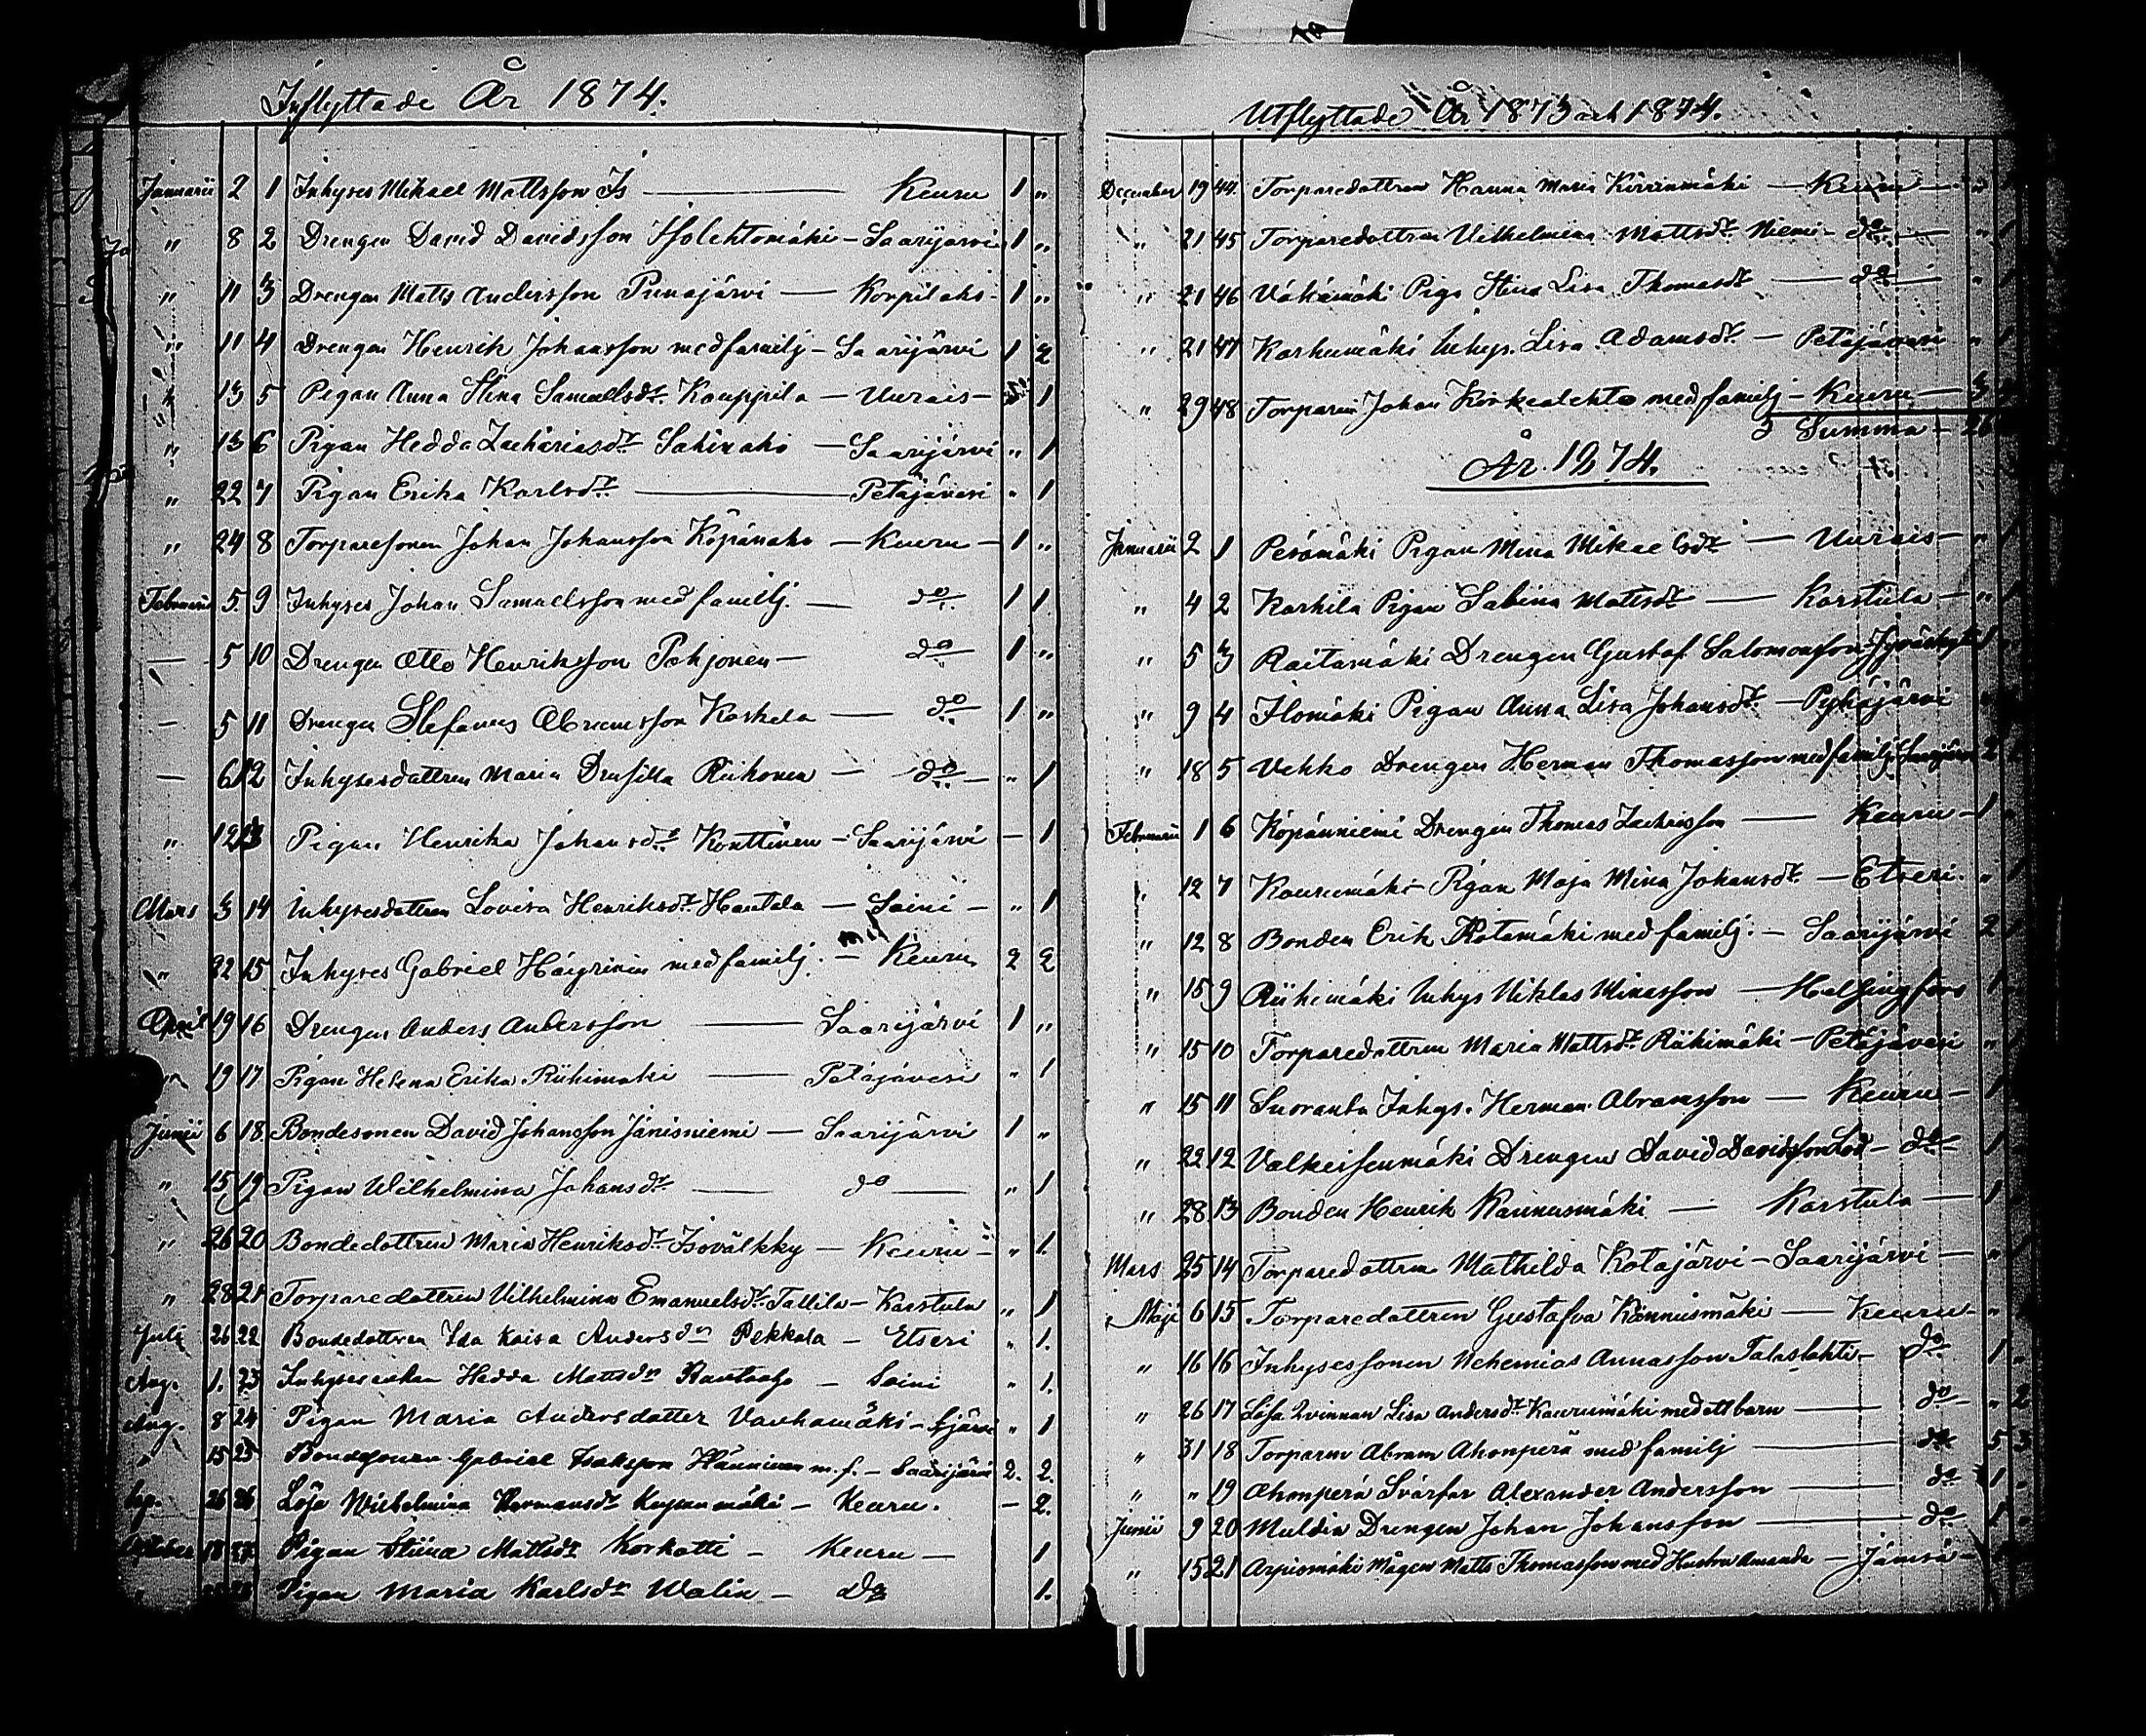 Inflyttade År 1874.
Januarii 2 1 Inhyses Mikael Mattsson Is — Keuru 1 "
" 8 2 Drengen David Davidsson Isolehtomäki — Saarijärvi 1 "
" 11 3 Drengen Matts Andersson Punajärvi — Korpilaks 1 "
" 11 4 Drengen Henrik Johansson med familj — Saarijärvi 1 2
" 13 5 Pigan Anna Stina Samuelsdr. Kauppila — Uurais — 1
" 13 6 Pigan Hedda Zachariasdr. Sahinaho — Saarijärvi " 1
" 22 7 Pigan Erika Karlsdr. — Petäjävesi " 1
" 24 8 Torparesonen Johan Johansson Köpänaho — Keuru — 1 "
Februarii 5 9 Inhyses Johan Samuelsson med familj. — do 1 1
— 5 10 Drengen Otto Henriksson Pohjonen — do 1 "
— 5 11 Drengen Stefanus Abramsson Koskela — do 1 "
— 6 12 Inhysesdattren Maria Drusilla Riihonen — do — " 1
" 12 13 Pigan Henrika Johansdr. Konttinen — Saarijärvi — 1
Mars 3 14 Inhysesdattren Lovisa Henriksdr. Hautala — Soini — " 1
" 22 15 Inhyses Gabriel Häyrinen med familj. — Keuru 2 2
April 19 16 Drengen Anders Andersson — Saarijärvi 1 "
" 19 17 Pigan Helena Erika Riihimäki — Petäjävesi " 1
Junii 6 18 Bondesonen David Johansson Jänisniemi — Saarijärvi 1 "
" 15 19 Pigan Wilhelmina Johansdr. — do — " 1
" 26 20 Bondedattren Maria Henriksdr. Isovälkky — Keuru — " 1.
" 28 21 Torparedattren Vilhelmina Emanuelsdr. Tallila — Karstula " 1
Juli 26 22 Bondedattren Ida Kaisa Andersdr Pekkala — Etseri " 1.
Aug. 1. 23 Inhysesenkan Hedda Mattsdr Rautaaho — Soini " 1.
Aug. 8 24 Pigan Maria Andersdatter Vanhamäki — Sjärvi " 1
" 15 25 Bondesonen Gabriel Isaksson Hänninen m. f. — Saarijärvi 2. 2.
Sep. 26 26 Lösa Wilhelmina Hermansdr. — Keuru. — 2.
October 18 27 Pigan Stiina Mattsdr Korkatti — Keuru — 1
" Pigan Maria Karlsdr Walin — do 1.
Utflyttade År 1873 och 1874.
December 19 44. Torparedattren Hanna Maria Kiviinmäki — Keuru — " 1
" 21 45 Torparedattren Vilhelmina Mattsdr. Niemi — do — " 1
" 21 46 Väkämäki Piga Stina Lisa Thomasdr — do — " 1
" 21 47 Karhumäki Inhys. Lisa Adamsdr. — Petäjävesi " 1
" 29 48 Torparen Johan Korkealehto med familj — Keuru — 3
Summa — 26
År. 1874.
Januarii 2 1 Perämäki Pigan Mina Mikaelsdr — Uurais — " 1
" 4 2 Karhila Pigan Sabina Mattsdr — Karstula — " 1
" 5 3 Raitamäki Drengen Gustaf Salomonsson Jyväskylä 1
" 9 4 Ilomäki Pigan Anna Lisa Johansdr. — Pyhäjärvi "
" 18 5 Vekko Drengen Herman Thomasson med familj Saarijärvi 2
Februarii 1 6 Köpänniemi Drengen Thomas Zachrisson — Keuru — 1
" 12 7 Kaurumäki Pigan Maja Mina Johansdr. — Etseri. " 1
" 12 8 Bonden Erik Ratamäki med familj. — Saarijärvi 2 1
" 15 9 Riihimäki Inhys Niklas Minasson — Helsingfors 1
" 15 10 Torparedattren Maria Mattsdr. Riihimäki — Petäjävesi " 1
" 15 11 Suoranta Inhys. Herman Abramsson — Keuru — 1
" 22 12 Valkeisenmäki Drengen David Davidsson — do — 1
" 28 13 Bonden Henrik Kannusmäki — Karstula — 1
Mars 25 14 Torparedattren Mathilda Kotajärvi — Saarijärvi — "
Maji 6 15 Torparedattren Gustafva Kännusmäki — Keuru — "
" 16 16 Inhysessonen Nehemias Annasson Talaslahti — do 1 "
" 26 17 Lösa Qvinnan Lisa Andersdr. Kaurumäki med ett barn — do " 2
" 31 18 Torparen Abram Ahonperä med familj — do 5 3
" " 19 Ahonperä Svärfar Alexander Andersson — do 1 "
Junii 9 20 Muldia Drengen Johan Johansson — do 1 "
" 15 21 Arpiomäki Mågen Matts Thomasson med Hustru Amanda — Jämsä —